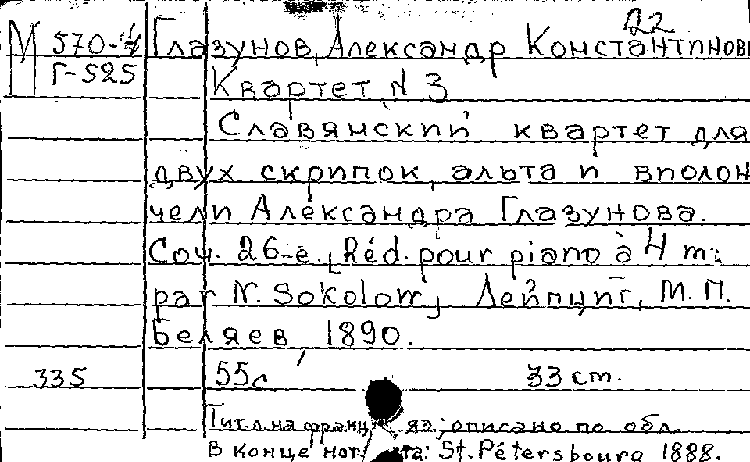 22
М 570-4 Глазунов, Александр Константинови
Г-525 Квартет, N 3
Славянский квартет для
двух скрипок, альта и виолон
чели Александра Глазунова.
Соч. 26-е. Réd. pour piano à 4 m:
par N. Sokolow, Лейпциг, М. П.
Беляев, 1890.
335 55с 33 cm.
Тит. л. на франц. яз; описано по обл.
В конце нот : St. Pétersbourg 1888.